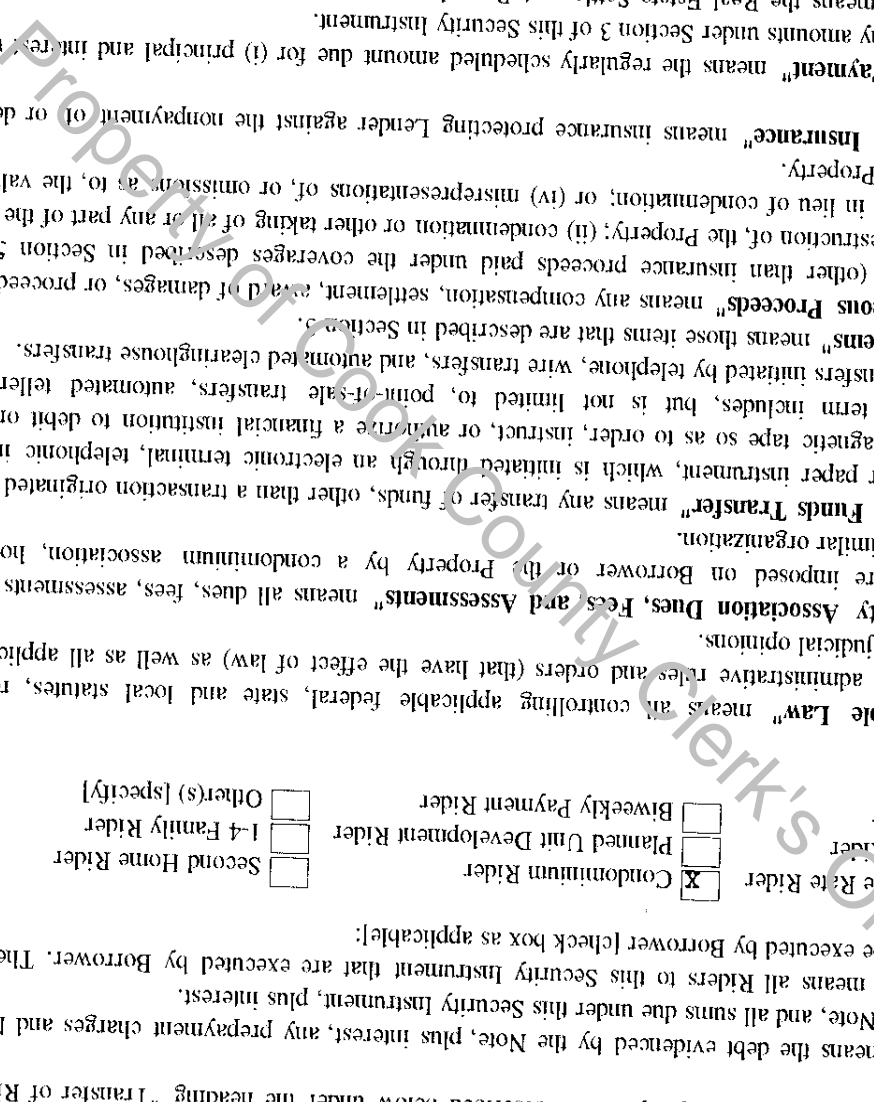 below under the heading "Transfer of Ri
means the debt evidenced by the Note, plus interest, any prepayment charges and l
Note, and all sums due under this Security Instrument, plus interest.
means all Riders to this Security Instrument that are executed by Borrower. The
e executed by Borrower [check box as applicable]:
e Rate Rider [X] Condominium Rider [ ] Second Home Rider
Rider [ ] Planned Unit Development Rider [ ] 1-4 Family Rider
[ ] Biweekly Payment Rider [ ] Other(s) [specify]
ble Law" means all controlling applicable federal, state and local statutes, r
administrative rules and orders (that have the effect of law) as well as all applic
judicial opinions.
ty Association Dues, Fees, and Assessments" means all dues, fees, assessments
re imposed on Borrower or the Property by a condominium association, ho
imilar organization.
Funds Transfer" means any transfer of funds, other than a transaction originated
r paper instrument, which is initiated through an electronic terminal, telephonic i
agnetic tape so as to order, instruct, or authorize a financial institution to debit or
term includes, but is not limited to, point-of-sale transfers, automated teller
nsfers initiated by telephone, wire transfers, and automated clearinghouse transfers.
ems" means those items that are described in Section 3.
ous Proceeds" means any compensation, settlement, award of damages, or proceed
(other than insurance proceeds paid under the coverages described in Section 5
estruction of, the Property; (ii) condemnation or other taking of all or any part of the
in lieu of condemnation; or (iv) misrepresentations of, or omissions as to, the val
Property.
Insurance" means insurance protecting Lender against the nonpayment of, or de
ayment" means the regularly scheduled amount due for (i) principal and interest
y amounts under Section 3 of this Security Instrument.
means the Real Estate
Property of Cook County Clerk's Of